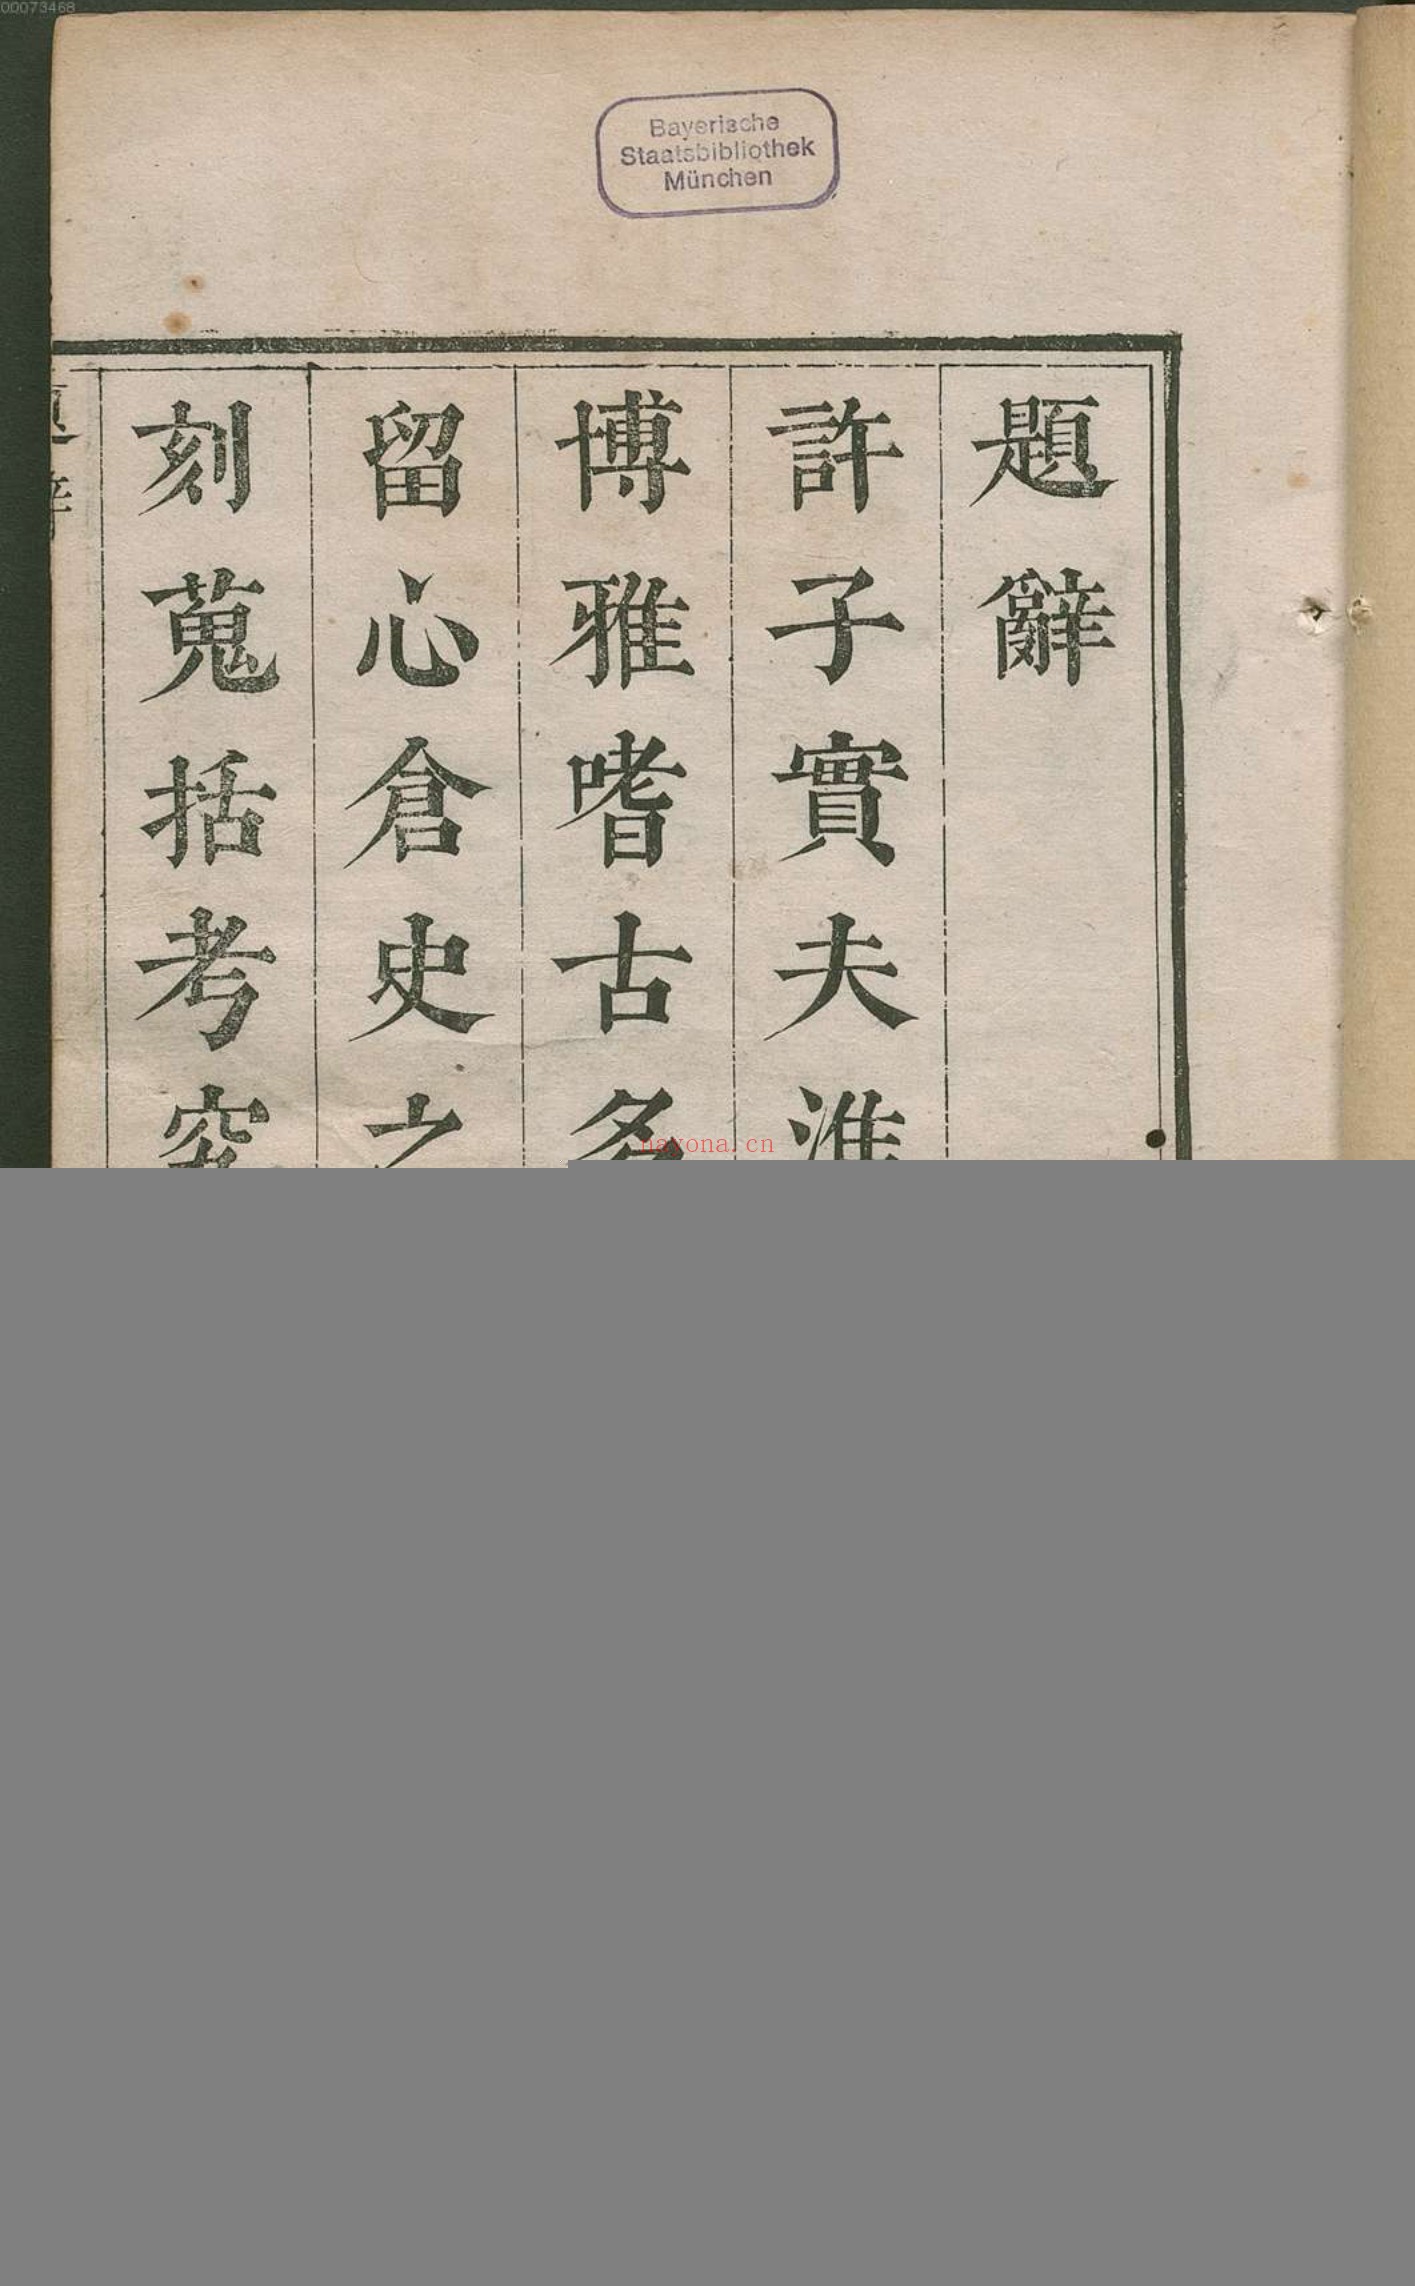 00073468
Bayerische
Staatsbibliothek
München
題辭
許子實夫淮
博雅嗜古多
留心倉史之
刻蒐括考究
題辭
nayona.cn